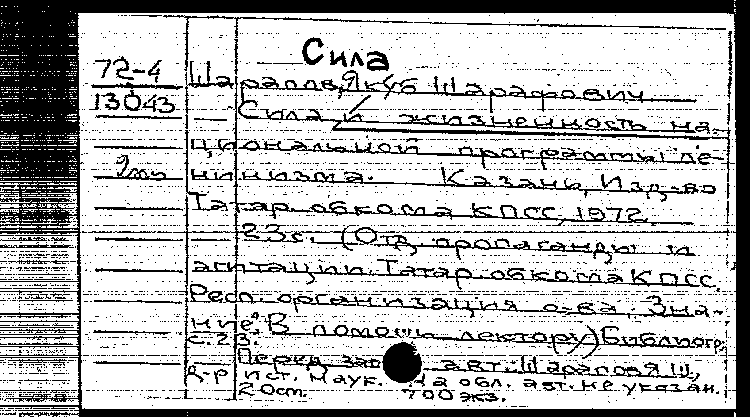 Сила
72-4
13043
Шарапов, Якуб Шарафович
Сила и жизненность на-
циональной программы ле-
нинизма. Казань, Изд-во
Татар. обкома КПСС, 1972.
23с. (Отд. пропаганды и
агитации Татар. обкома КПСС.
Респ. организация о-ва "Зна-
ние". В помощь лектору) Библиогр.
с. 23.
Перед авт.: Шарапов Я.Ш.,
д-р ист. наук. На обл. авт. не указан.
20см. 700 экз.